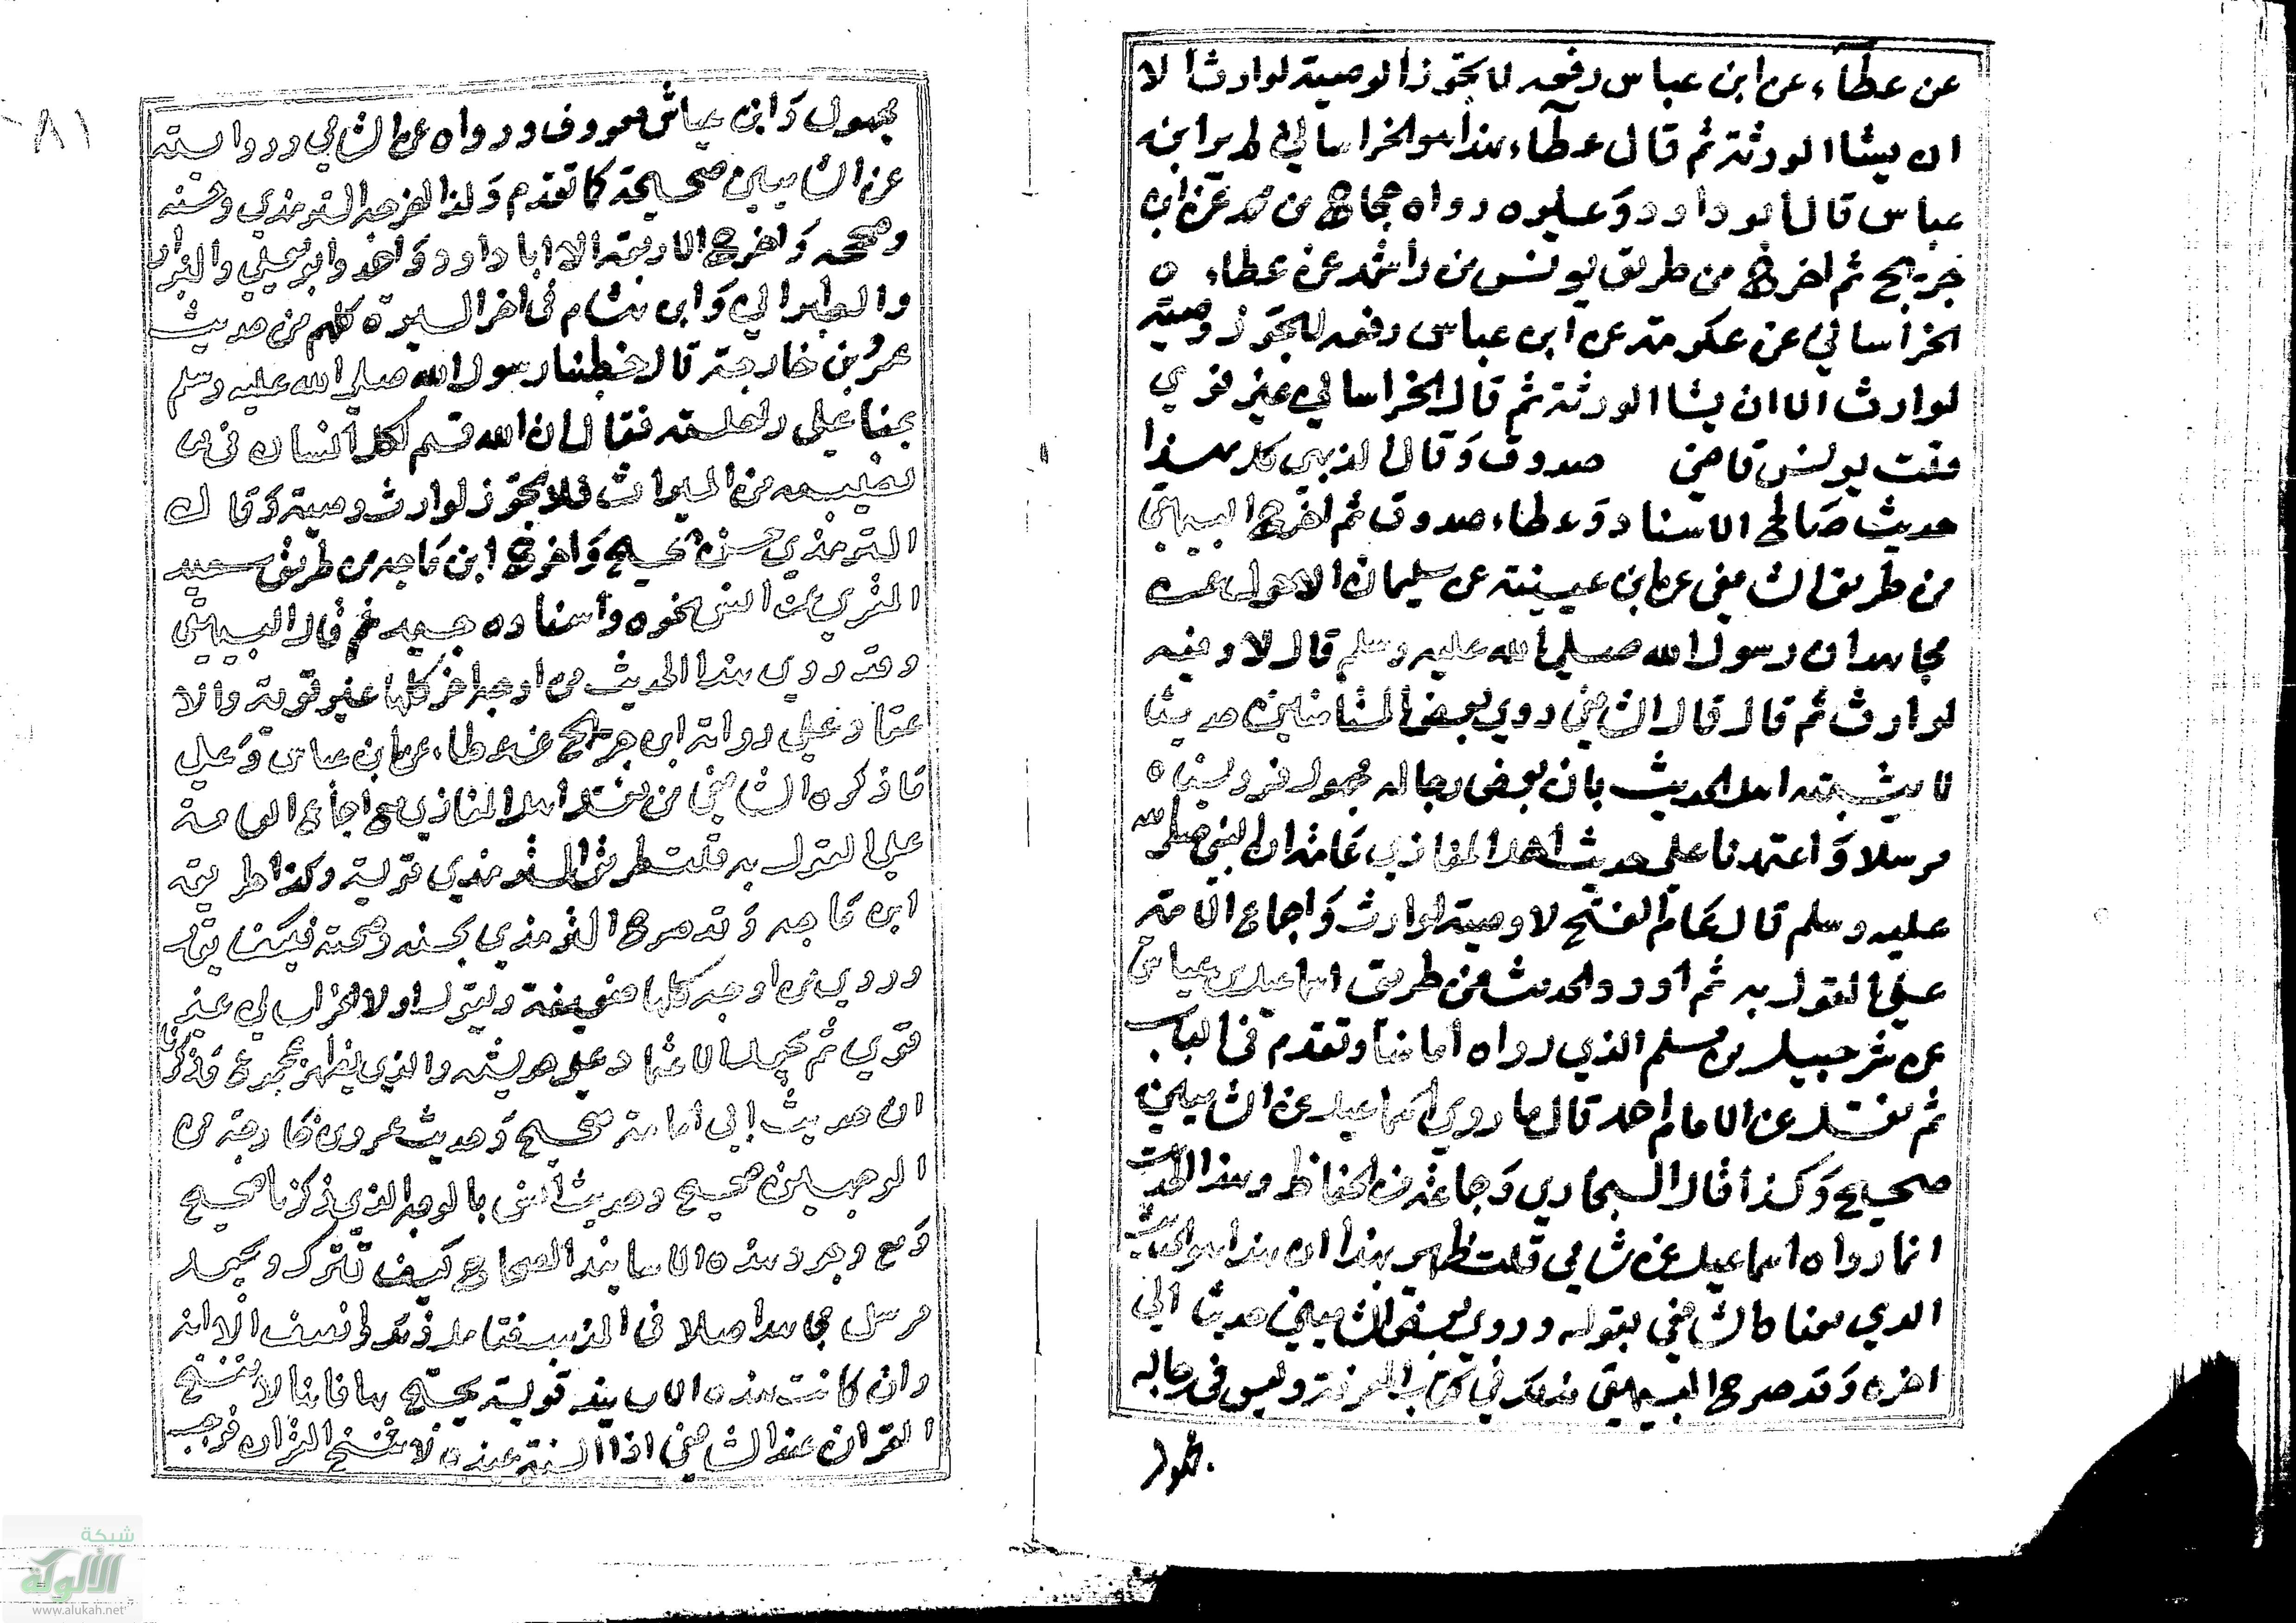 عن عطاء عن ابن عباس رفعه لا تجوز الوصية لوارث الا
ان يشا الورثة ثم قال عطاء هذا هو الخراساني لم ير ابن
عباس قاله ابو داود وغيره ورواه حجاج بن محمد عن ابن
جريج ثم اخرج من طريق يونس بن راشد عن عطاء
الخراساني عن عكرمة عن ابن عباس رفعه لا تجوز وصية
لوارث الا ان يشا الورثة ثم قال الخراساني غير قوي
قلت يونس قاضي صدوق وقال الذهبي هذا
حديث صالح الاسناد وعطاء صدوق ثم اخرج البيهقي
من طريق الشافعي عن ابن عيينة عن سليمان الاحول عن
مجاهد ان رسول الله صلى الله عليه وسلم قال لا وصية
لوارث ثم قال قال الشافعي روي بعض الشاميين حديثا
لا يثبته اهل الحديث بان بعض رجاله مجهول فرويناه
مرسلا واعتمدنا على حديث اهل المغازي عامة ان النبي صلى الله
عليه وسلم قال عام الفتح لا وصية لوارث واجماع العامة
على القول به ثم اورد الحديث من طريق اسماعيل بن عياش
عن شرحبيل بن مسلم الذي رواه امامنا وتقدم في الباب
ثم نقل عن الامام احمد قال ما روي اسماعيل عن الشاميين
صحيح وكذا قال البخاري وجماعة من الحفاظ وهذا الحديث
انما رواه اسماعيل عن شامي قلت ظهر بهذا ان هذا هو الحديث
الذي عنا الشافعي بقوله وروي بعض الشاميين حديثا الى
اخره وقد صرح البيهقي بذلك في كتاب المعرفة وليس في رجاله
مجهول
٨١
مجهول وابن عياش معروف ورواه عن الشامي وروايته
عن الشاميين صحيحة كما تقدم ولذا اخرجه الترمذي وحسنه
وصححه واخرج الاربعة الا ابا داود واحمد وابو يعلي والبزار
والطبراني وابن هشام في اخر السيرة كلهم من حديث
عمرو بن خارجة قال خطبنا رسول الله صلى الله عليه وسلم
بمنا على راحلته فقال ان الله قسم لكل انسان
نصيبه من الميراث فلا تجوز لوارث وصية وقال
الترمذي حسن صحيح واخرج ابن ماجه من طريق سعيد
المقبري عن انس نحوه واسناده جيد ثم قال البيهقي
وقد روي هذا الحديث من اوجه اخر كلها غير قوية والا
عتماد على رواية ابن جريج عن عطاء عن ابن عباس وعلى
ما ذكره الشافعي من نقل اهل المغازي مع اجماع العامة
على القول به قلت طريق الترمذي قوية وكذا طريق
ابن ماجه وقد صرح الترمذي بحسنه وصحته فكيف يقول
وروي من اوجه كلها ضعيفة ويقول اولا الخراساني غير
قوي ثم يجعل الاعتماد على حديثه والذي يظهر بمجموع ما ذكرنا
ان حديث ابي امامة صحيح وحديث عمرو بن خارجة من
الوجهين صحيح وحديث انس بالوجه الذي ذكرنا صحيح
ومع وجود هذه الاسانيد الصحاح كيف تترك ويجعل
مرسل مجاهد اصلا في الترك فتامل ذلك وانصف الا انه
وان كانت هذه الاسانيد قوية يحتج بها فانها لا تنسخ
القران عند الشافعي اذ السنة عنده لا تنسخ القران فوجب
شبكة
الألوكة
www.alukah.net